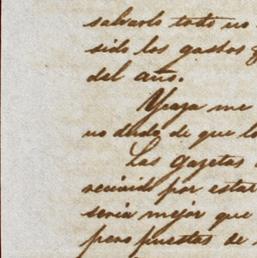 salvarlo todo no
sido los gastos
del año.
me
no dudo de que lo
Las gazetas
recivido por estar
seria mejor que
pero puestas de